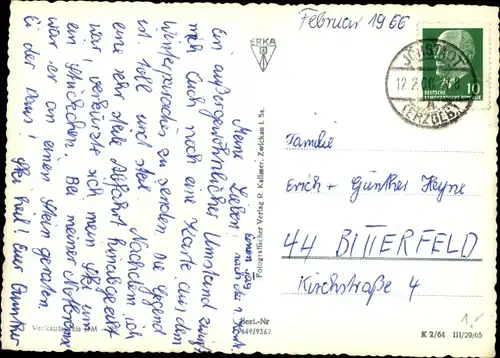 Februar 1966
JÖHSTADT
12.2.66
(ERZGEB)
DEUTSCHE
DEMOKRATISCHE REPUBLIK
10
ERKA
Meine Lieben!
Ein außergewöhnlicher Umstand zwingt
mich Euch noch eine Karte aus dem
Winterparadies zu senden. Die Gegend
ist toll und steil. Nachdem ich
eine sehr steile Abfahrt hinabgesaust
war, verkürzte sich mein Ski um
ein Stückchen. Bei meiner Notbremse
war er an einem Stein geraten.
Ei der Daus! Ski heil! Euer Günther
Fotografischer Verlag R. Kallmer, Zwickau i. Sa.
Best.-Nr
Verkaufspreis DM
Familie
Erich + Günther Heyne
44 BITTERFELD
Kirchstraße 4
1.-
K 2/64 III/29/65